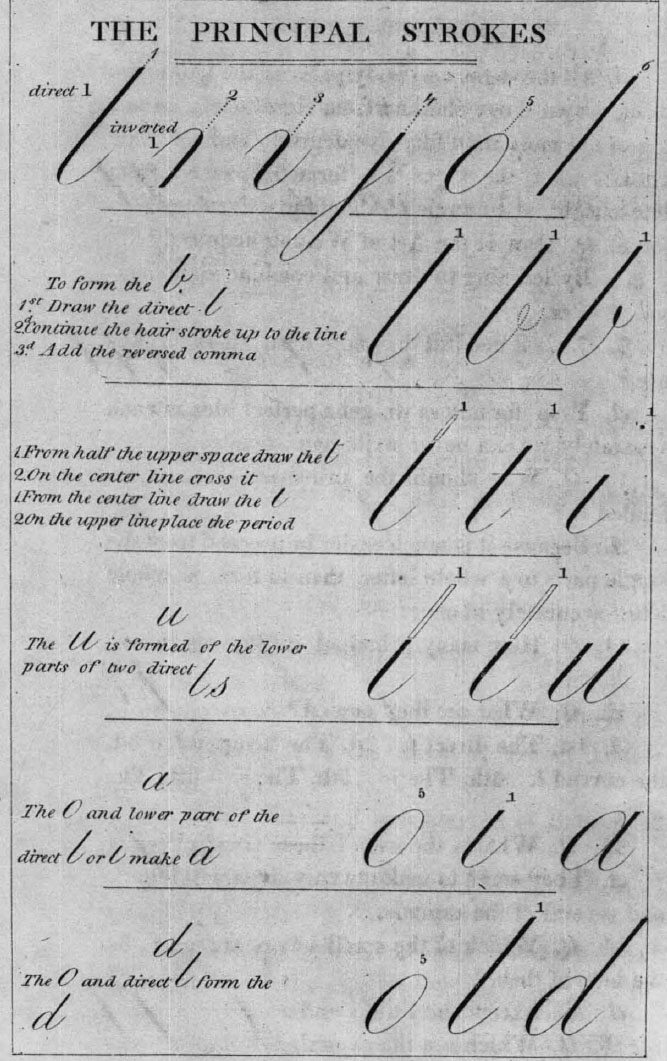 THE PRINCIPAL STROKES
direct 1 1 2 3 4 5 6
inverted
1
l n v j o l
To form the b.
1.st Draw the direct l
2.d Continue the hair stroke up to the line
3.d Add the reversed comma
1 1 1
l b b
1. From half the upper space draw the t
2. On the center line cross it
1. From the center line draw the l
2. On the upper line place the period
1 1 1
l t i
u
The U is formed of the lower
parts of two direct
ls
1 1
l l u
a
The O and lower part of the
direct l or l make a
5 1
o l a
d
The O and direct l form the
d
5 1
o l d